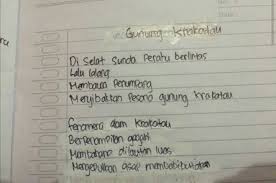 Gunung Krakatau
Di Selat Sunda Perahu berlintas
Lalu lalang
Membawa Penumpang
Menyibakkan Pesona gunung Krakatau
Fenomena alam Krakatau
Berpenampilan
Membatang dilautan luas
Mengepulkan asap